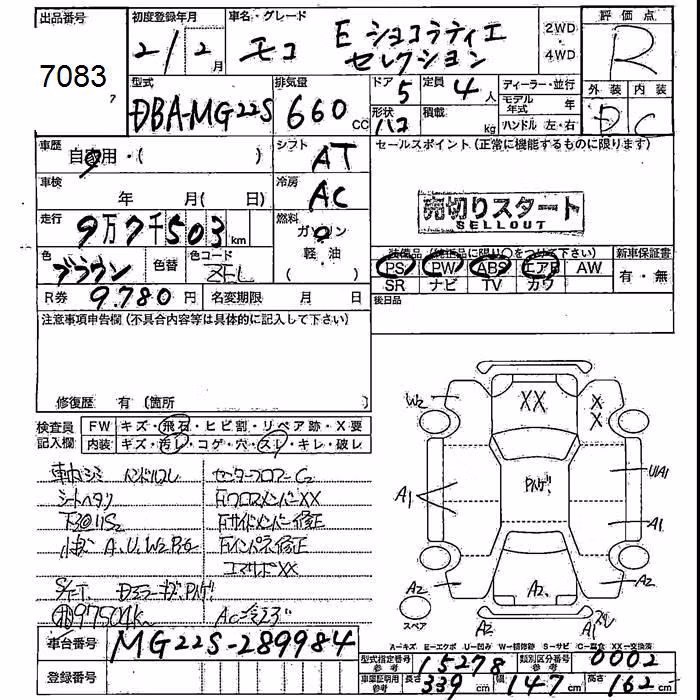 出品番号
7083
初度登録年月
21/2月
車名・グレード
モコ E ショコラティエ
セレクション
2WD
4WD
評価点
R
外装 内装
D C
型式
DBA-MG22S
排気量
660 CC
ドア 5
定員 4人
形状 ハコ
積載 kg
ディーラー・並行
モデル年式 年
ハンドル 左・右
車歴
自家用・( )
シフト
AT
セールスポイント(正常に機能するものに限ります)
車検
年 月( 日)
冷房
AC
売切りスタート
SELLOUT
走行
9万7千503km
燃料
ガソリン
軽油
( )
色
ブラウン
色替
色コード
装備品(純正品に限り○をつけて下さい)
新車保証書
PS PW ABS エアB AW
SR ナビ TV カワ
有・無
R券 9.780円
名変期限 月 日
後日品
注意事項申告欄(不具合内容等は具体的に記入して下さい)
修復歴 有(箇所
検査員
記入欄
FW キズ・飛石・ヒビ割・リペア跡・X要
内装 キズ・汚レ・コゲ・穴・スレ・キレ・破レ
車内シミ ハンドルスレ
シートヘタリ
センターフロアーC2
FクロスメンバーXX
Fサイドメンバー修正
Fインパネ修正
コアサポXX
97504km
W2
XX
X
X
A1
Pハゲ
U1A1
A1
A2
A2
A2
A2
スペア
A1
A=キズ E=エクボ U=凹み W=補修跡 S=サビ C=腐食 XX=交換済
車台番号
MG22S-289984
登録番号
型式指定番号
参考
15278
類別区分番号
参考
0002
車庫証明用
参考
長さ 339cm
幅 147cm
高さ 162cm